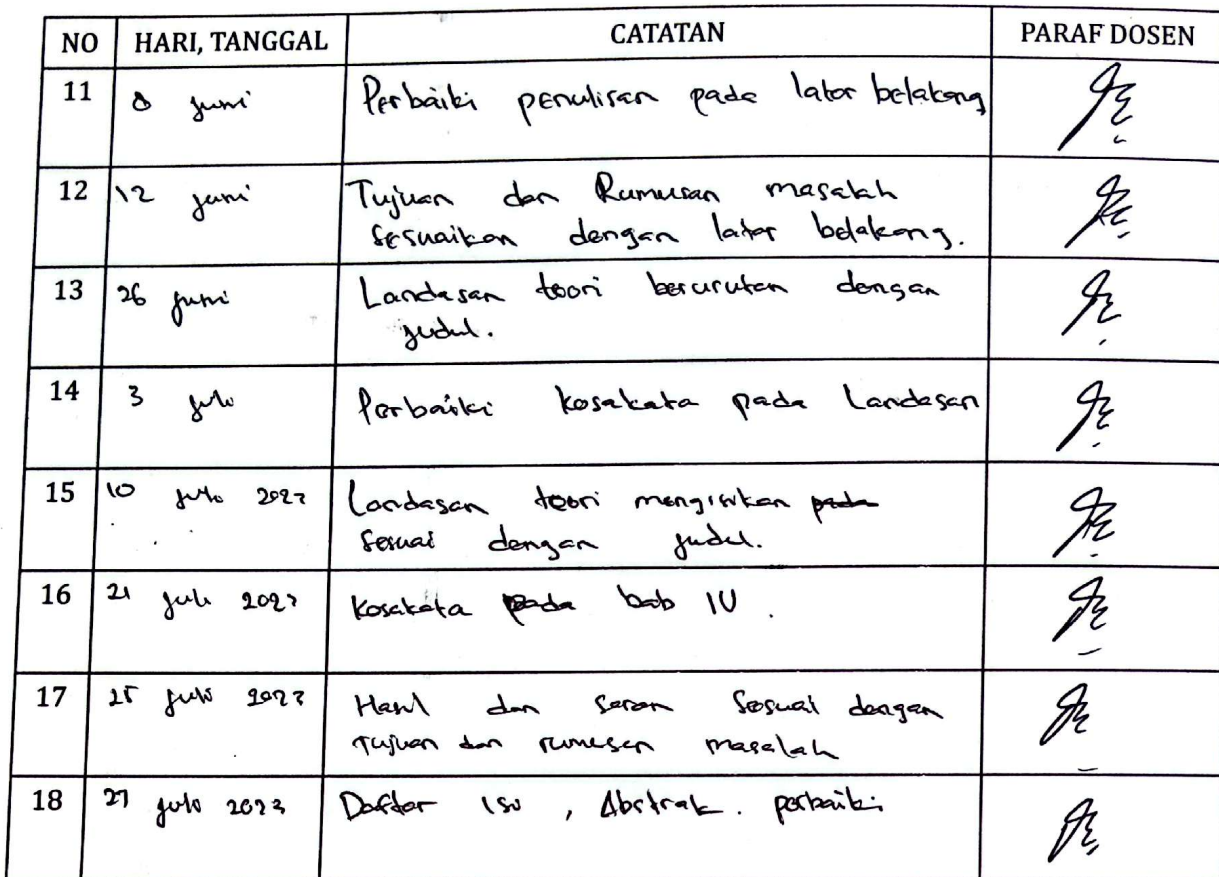 NO HARI, TANGGAL CATATAN PARAF DOSEN
11 8 juni Perbaiki penulisan pada latar belakang
12 12 juni Tujuan dan Rumusan masalah
sesuaikan dengan latar belakang.
13 26 juni Landasan teori berurutan dengan
judul.
14 3 juli Perbaiki kosakata pada Landasan
15 10 juli 2023 Landasan teori mengisikan pada
sesuai dengan judul.
16 21 juli 2023 Kosakata pada bab IV.
17 25 juli 2023 Hasil dan saran sesuai dengan
Tujuan dan rumusan masalah
18 27 juli 2023 Daftar Isi, Abstrak. perbaiki